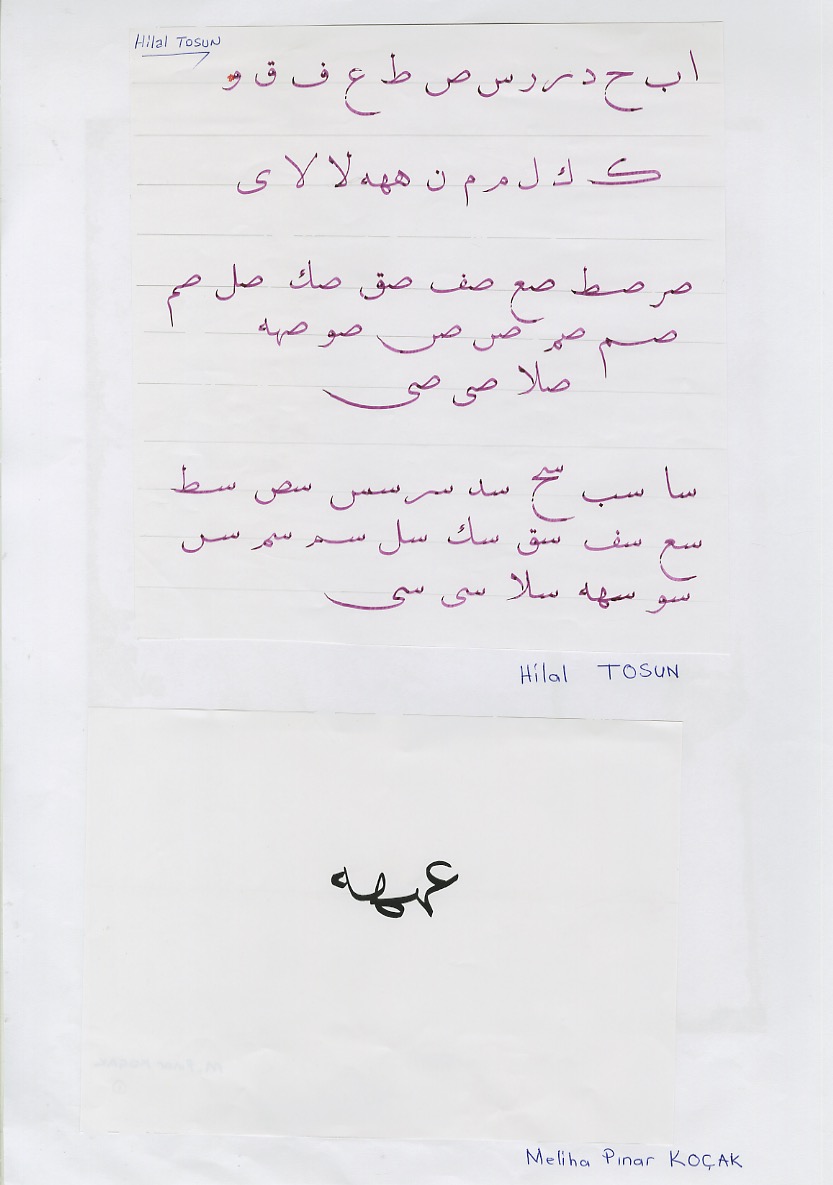 Hilal TOSUN
ا ب ح د ر ر س ص ط ع ف ق و
ك ك ل م م ن ههه لا لا ى
صر صط صع صف صق صك صل صم
صم صم صں صں صو صهه
صلا صى صى
سا سب سح سد سر سس سص سط
سع سف سق سك سل سم سم سں
سو سهه سلا سى سى
Hilal TOSUN
عهه
Meliha Pınar KOÇAK